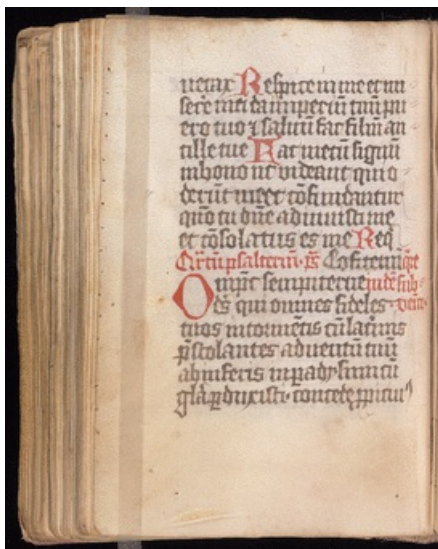 uerax Respice in me et mi
sere mei da imperiū tuū pu
ero tuo ⁊ saluū fac filiū an
cille tue Fac mecū signū
in bono ut videant qui o
derūt me et cōfundantur
qm̄ tu dn̄e adiuuisti me
et cōsolatus es me Req
psalteriū ps Cōfitemī
Omp̄c sempiterne
ds̄ qui omnes fideles
tuos in tormētis cū latum̄s
p̄stolantes aduentū tuū
ab inferis in parady sum cū
glā eduxisti concede